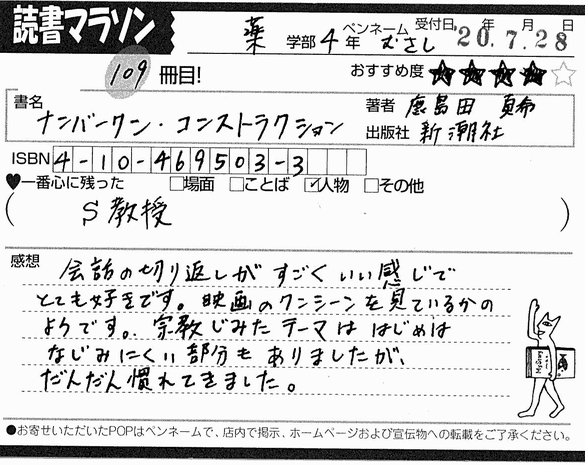 読書マラソン
薬 学部 4 年 ペンネーム むさし 受付日 20.年7.月28日
109 冊目! おすすめ度 ★★★★☆
書名 ナンバーワン・コンストラクション
著者 鹿島田 真希
出版社 新潮社
ISBN 4-10-469503-3
♥一番心に残った □場面 □ことば ☑人物 □その他
( S教授 )
感想
会話の切り返しがすごくいい感じで
とても好きです。映画のワンシーンを見ているかの
ようです。宗教じみたテーマははじめは
なじみにくい部分もありましたが、
だんだん慣れてきました。
●お寄せいただいたPOPはペンネームで、店内で掲示、ホームページおよび宣伝物への転載をご了承ください。